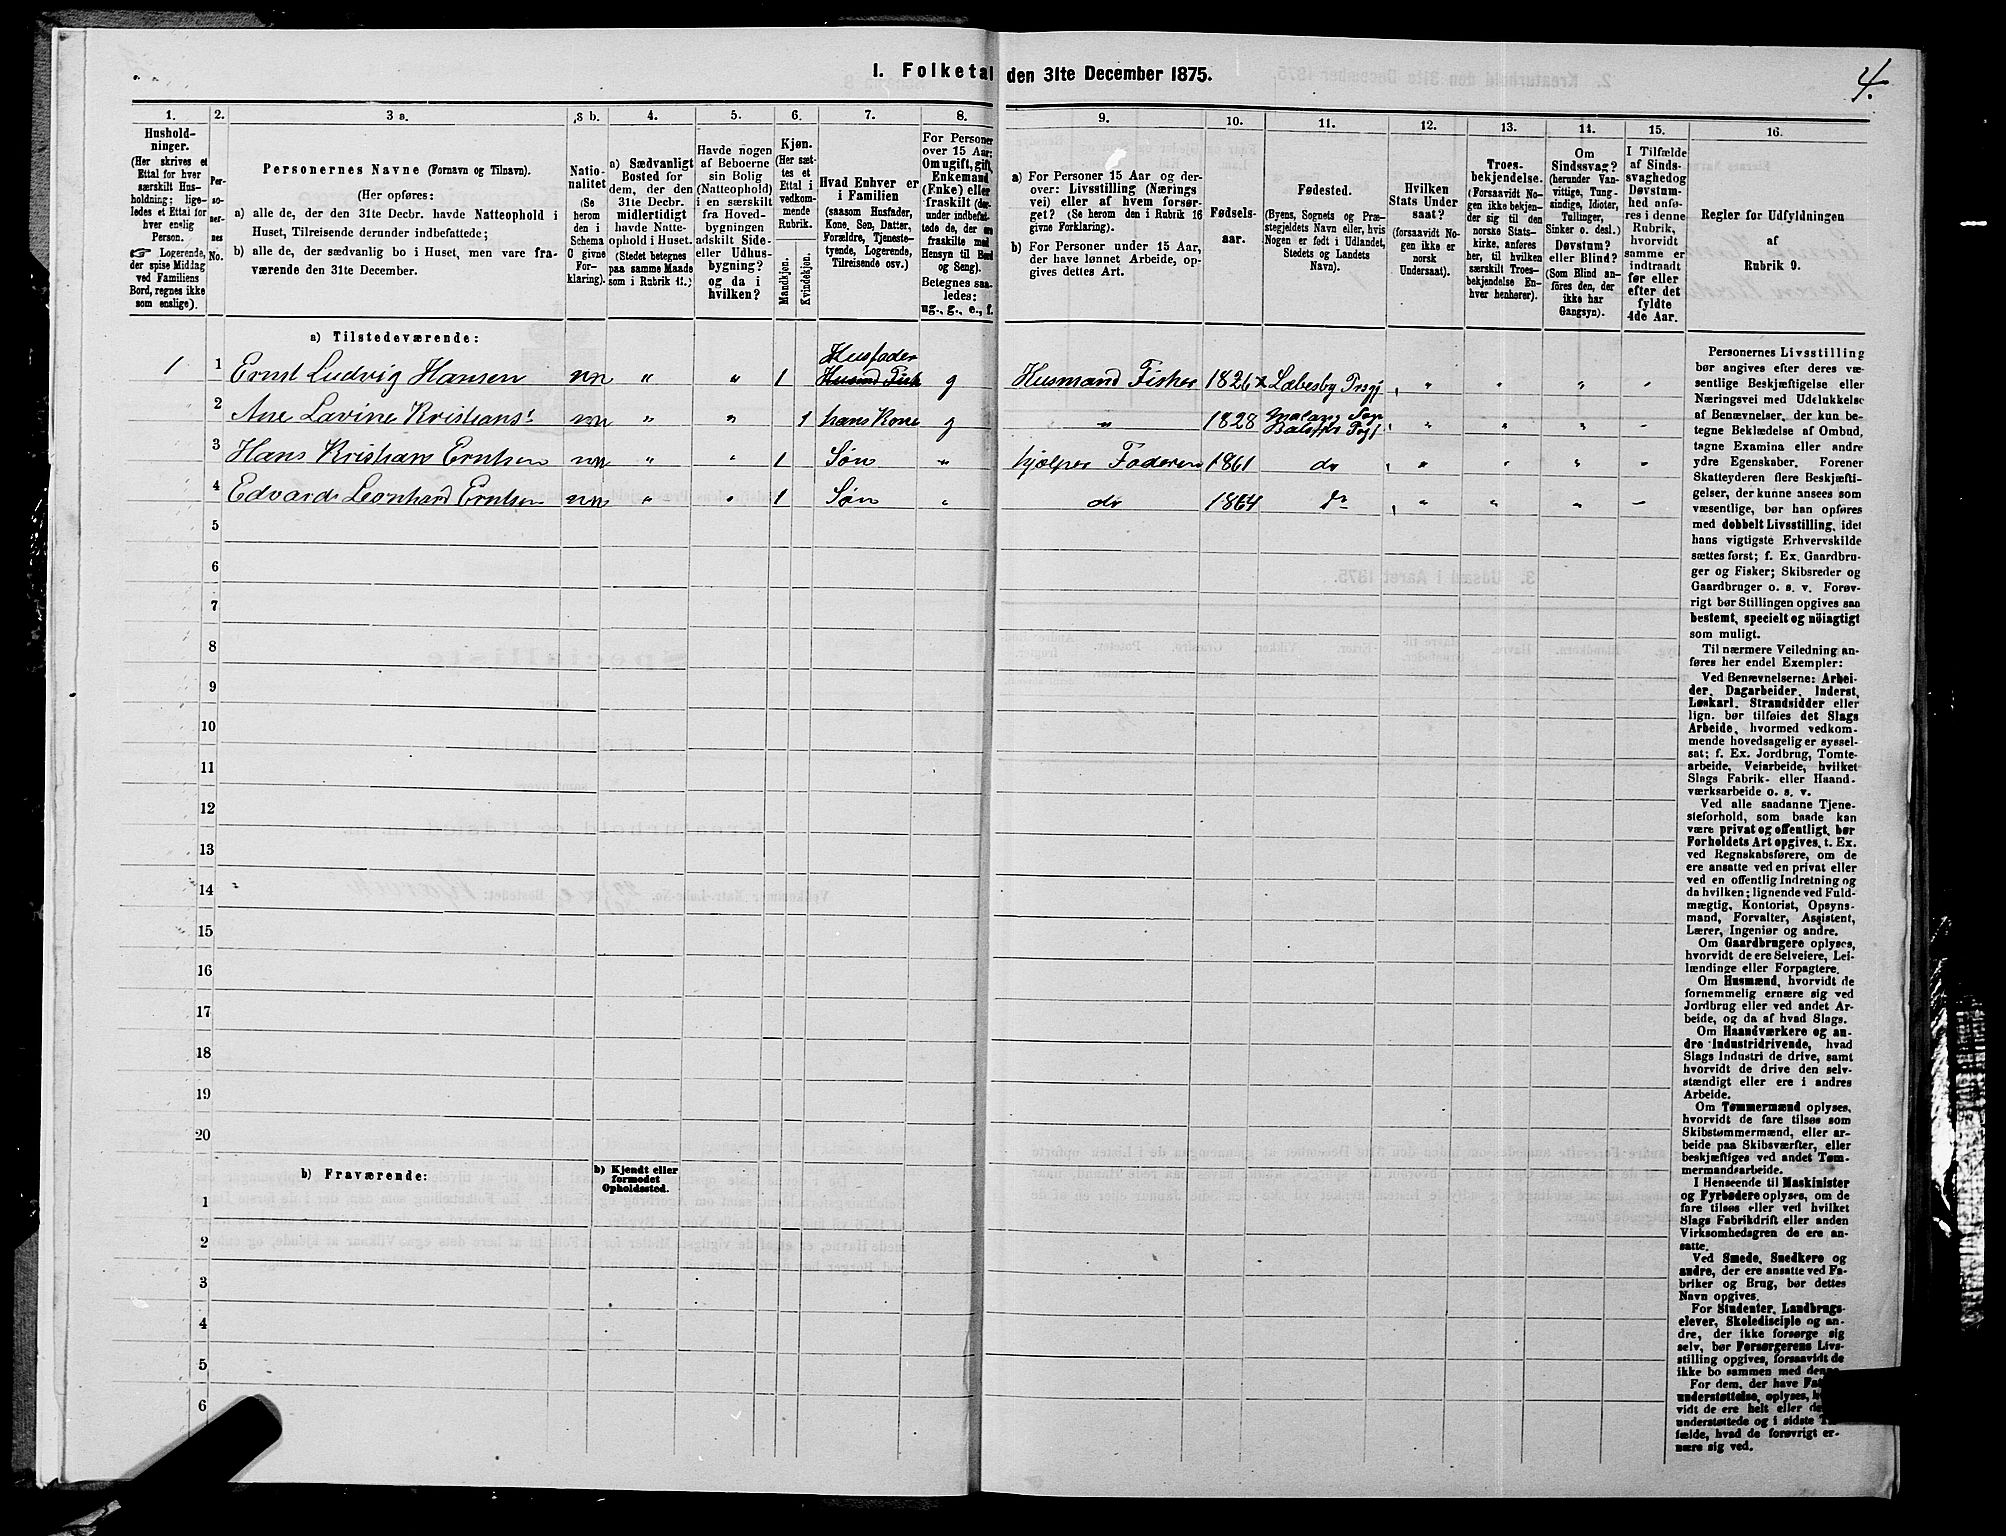 I. Folketal den 31te December 1875.
4.
1. 2. 3 a. 3 b. 4. 5. 6. 7. 8. 9. 10. 11. 12. 13. 14. 15. 16.
Hushold-
ninger.
(Her skrives et
Ettal for hver
særskilt Hus-
holdning; lige-
ledes et Ettal for
hver enslig
Person.
☞ Logerende,
der spise Middag
ved Familiens
Bord, regnes ikke
som enslige).
Per-
so-
ner-
nes
No.
Personernes Navne (Fornavn og Tilnavn).
(Her opføres:
a) alle de, der den 31te Decbr. havde Natteophold i
Huset, Tilreisende derunder indbefattede;
b) alle de, der sædvanlig bo i Huset, men vare fra-
værende den 31te December.
Natio-
nalitet
(Se
herom
den i
Schema
O givne
For-
klaring).
a) Sædvanligt
Bosted for
dem, der den
31te Decbr.
midlertidigt
havde Natte-
ophold i Huset.
(Stedet betegnes
paa samme Maade
som i Rubrik 11.)
Havde nogen
af Beboerne
sin Bolig
(Natteophold)
i en særskilt
fra Hoved-
bygningen
adskilt Side-
eller Udhus-
bygning?
og da i
hvilken?
Kjøn.
(Her sæt-
tes et
Ettal i
vedkom-
mende
Rubrik.
Mandkjøn.
Kvindekjøn.
Hvad Enhver er
i Familien
(saasom Husfader,
Kone, Søn, Datter,
Forældre, Tjeneste-
tyende, Logerende,
Tilreisende osv.)
For Personer
over 15 Aar:
Om ugift, gift,
Enkemand
(Enke) eller
fraskilt (der-
under indbefat-
tede de, der ere
fraskilte med
Hensyn til Bord
og Seng).
Betegnes saa-
ledes:
ug., g., e., f.
a) For Personer 15 Aar og der-
over: Livsstilling (Nærings
vei) eller af hvem forsør-
get? (Se herom den i Rubrik 16
givne Forklaring).
b) For Personer under 15 Aar,
der have lønnet Arbeide, op-
gives dettes Art.
Fødsels-
aar.
Fødested.
(Byens, Sognets og Præ-
stegjeldets Navn eller, hvis
Nogen er født i Udlandet,
Stedets og Landets
Navn).
Hvilken
Stats Under
saat?
(forsaavidt No-
gen ikke er
norsk
Undersaat).
Troes-
bekjendelse.
(Forsaavidt No-
gen ikke bekjen-
der sig til den
norske Stats-
kirke, anføres
her, til hvilken
særskilt Troes-
bekjendelse En-
hver henhører).
Om
Sindssvag?
(herunder Van-
vittige, Tung-
sindige, Idioter,
Tullinger,
Sinker o. desl.)
Døvstum?
eller Blind?
(Som Blind an-
føres den, der
ikke har
Gangsyn).
I Tilfælde
af Sinds-
svaghedog
Døvstum-
hed anfø-
res i denne
Rubrik,
hvorvidt
samme er
indtraadt
før eller
efter det
fyldte
4de Aar.
Regler for Udfyldningen
af
Rubrik 9.
a) Tilstedeværende:
Husfader
1 1 Ernst Ludvig Hansen nn " " 1 g Husmand Fisker 1826 Læbesby
2 Ane Lavine Kristians nn " " 1 hans Kone g " 1828
3 Hans Kristian Erntsen nn " " 1 Søn " hjælper Faderen 1861 do
4 Edvard Leonhard Erntsen nn " " 1 Søn " do 1864 do
5
6
7
8
9
10
11
12
13
14
15
16
17
18
19
20
b) Fraværende:
b) Kjendt eller
formodet
Opholdssted.
1
2
3
4
5
6
Personernes Livsstilling
bør angives efter deres væ-
sentlige Beskjæftigelse eller
Næringsvei med Udelukkelse
af Benævnelser, der kun be-
tegne Beklædelse af Ombud,
tagne Examina eller andre
ydre Egenskaber. Forener
Skatteyderen flere Beskjæfti-
gelser, der kunne ansees som
væsentlige, bør han opføres
med dobbelt Livsstilling, idet
hans vigtigste Erhvervskilde
sættes først; f. Ex. Gaardbru-
ger og Fisker; Skibsreder og
Gaardbruger o. s. v. Forøv-
rigt bør Stillingen opgives saa
bestemt, specielt og nöiagtigt
som muligt.
Til nærmere Veiledning an-
føres her endel Exempler:
Ved Benævnelserne: Arbei-
der, Dagarbeider, Inderst,
Løskarl, Strandsidder eller
lign. bør tilføies det Slags
Arbeide, hvormed vedkom-
mende hovedsagelig er syssel-
sat; f. Ex. Jordbrug, Tomte-
arbeide, Veiarbeide, hvilket
Slags Fabrik- eller Haand-
værksarbeide o. s. v.
Ved alle saadanne Tjene-
steforhold, som baade kan
være privat og offentligt, bør
Forholdets Art opgives, t. Ex.
ved Regnskabsførere, om de
ere ansatte ved en privat eller
ved en offentlig Indretning og
da hvilken; lignende ved Fuld-
mægtig, Kontorist, Opsyns-
mand, Forvalter, Assistent,
Lærer, Ingeniør og andre.
Om Gaardbrugere oplyses,
hvorvidt de ere Selveiere, Lei-
lændinge eller Forpagtere.
Om Husmænd, hvorvidt de
fornemmelig ernære sig ved
Jordbrug eller ved andet Ar-
beide, og da af hvad Slags.
Om Haandværkere og an-
dre industridrivende, hvad
Slags Industri de drive, samt
hvorvidt de drive den selv-
stændigt eller ere i andres
Arbeide.
Om Tømmermænd oplyses,
hvorvidt de fare tilsøs som
Skibstømmermænd, eller ar-
beide paa Skibsværfter, eller
beskjæftiges ved andet Tøm-
mermandsarbeide.
I Henseende til Maskinister
og Fyrbødere oplyses, om de
fare tilsøs eller ved hvilket
Slags Fabrikdrift eller anden
Virksomhedsgren de ere an-
satte.
Ved Smede, Snedkere og
andre, der ere ansatte ved Fa-
briker og Brug, bør dettes
Navn opgives.
For Studenter, Landbrugs-
elever, Skoledisciple og an-
dre, der ikke forsørge sig
selv, bør Forsørgerens Livs-
stilling opgives, forsaavidt de
ikke bo sammen med denne.
For dem, der have
understøttelse, oplyses,
vidt de ere helt eller
understøttede og i sidste
fælde, hvad de forøvrigt er-
nære sig ved.